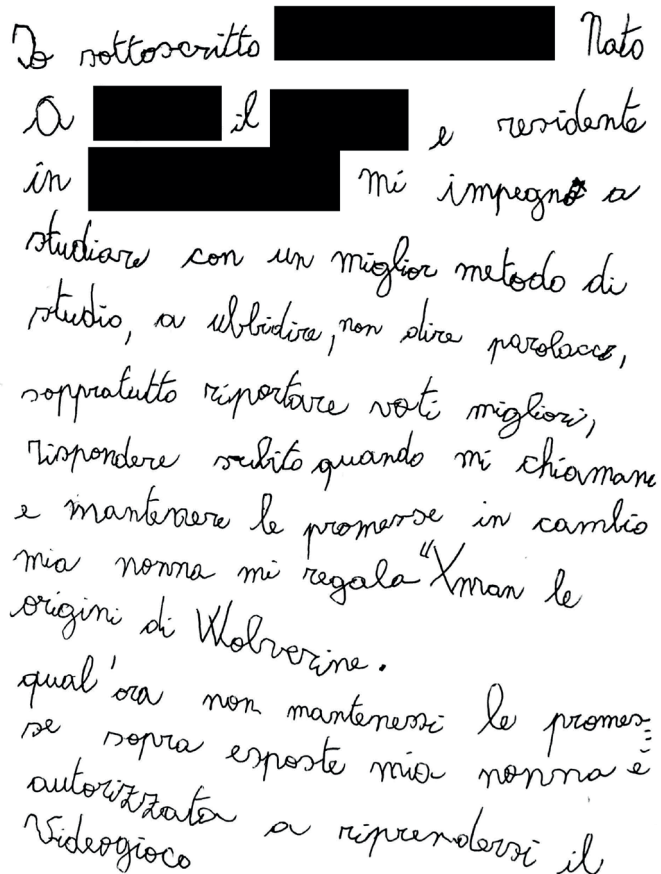 Io sottoscritto Nato
a il e residente
in mi impegno a
studiare con un miglior metodo di
studio, a ubbidire, non dire parolacce,
soppratutto riportare voti migliori,
rispondere subito quando mi chiamano
e mantenere le promesse in cambio
mia nonna mi regala "Xman le
origini di Wolverine.
qual'ora non mantenessi le promes=
se sopra esposte mia nonna è
autorizzata a riprendersi il
Videogioco